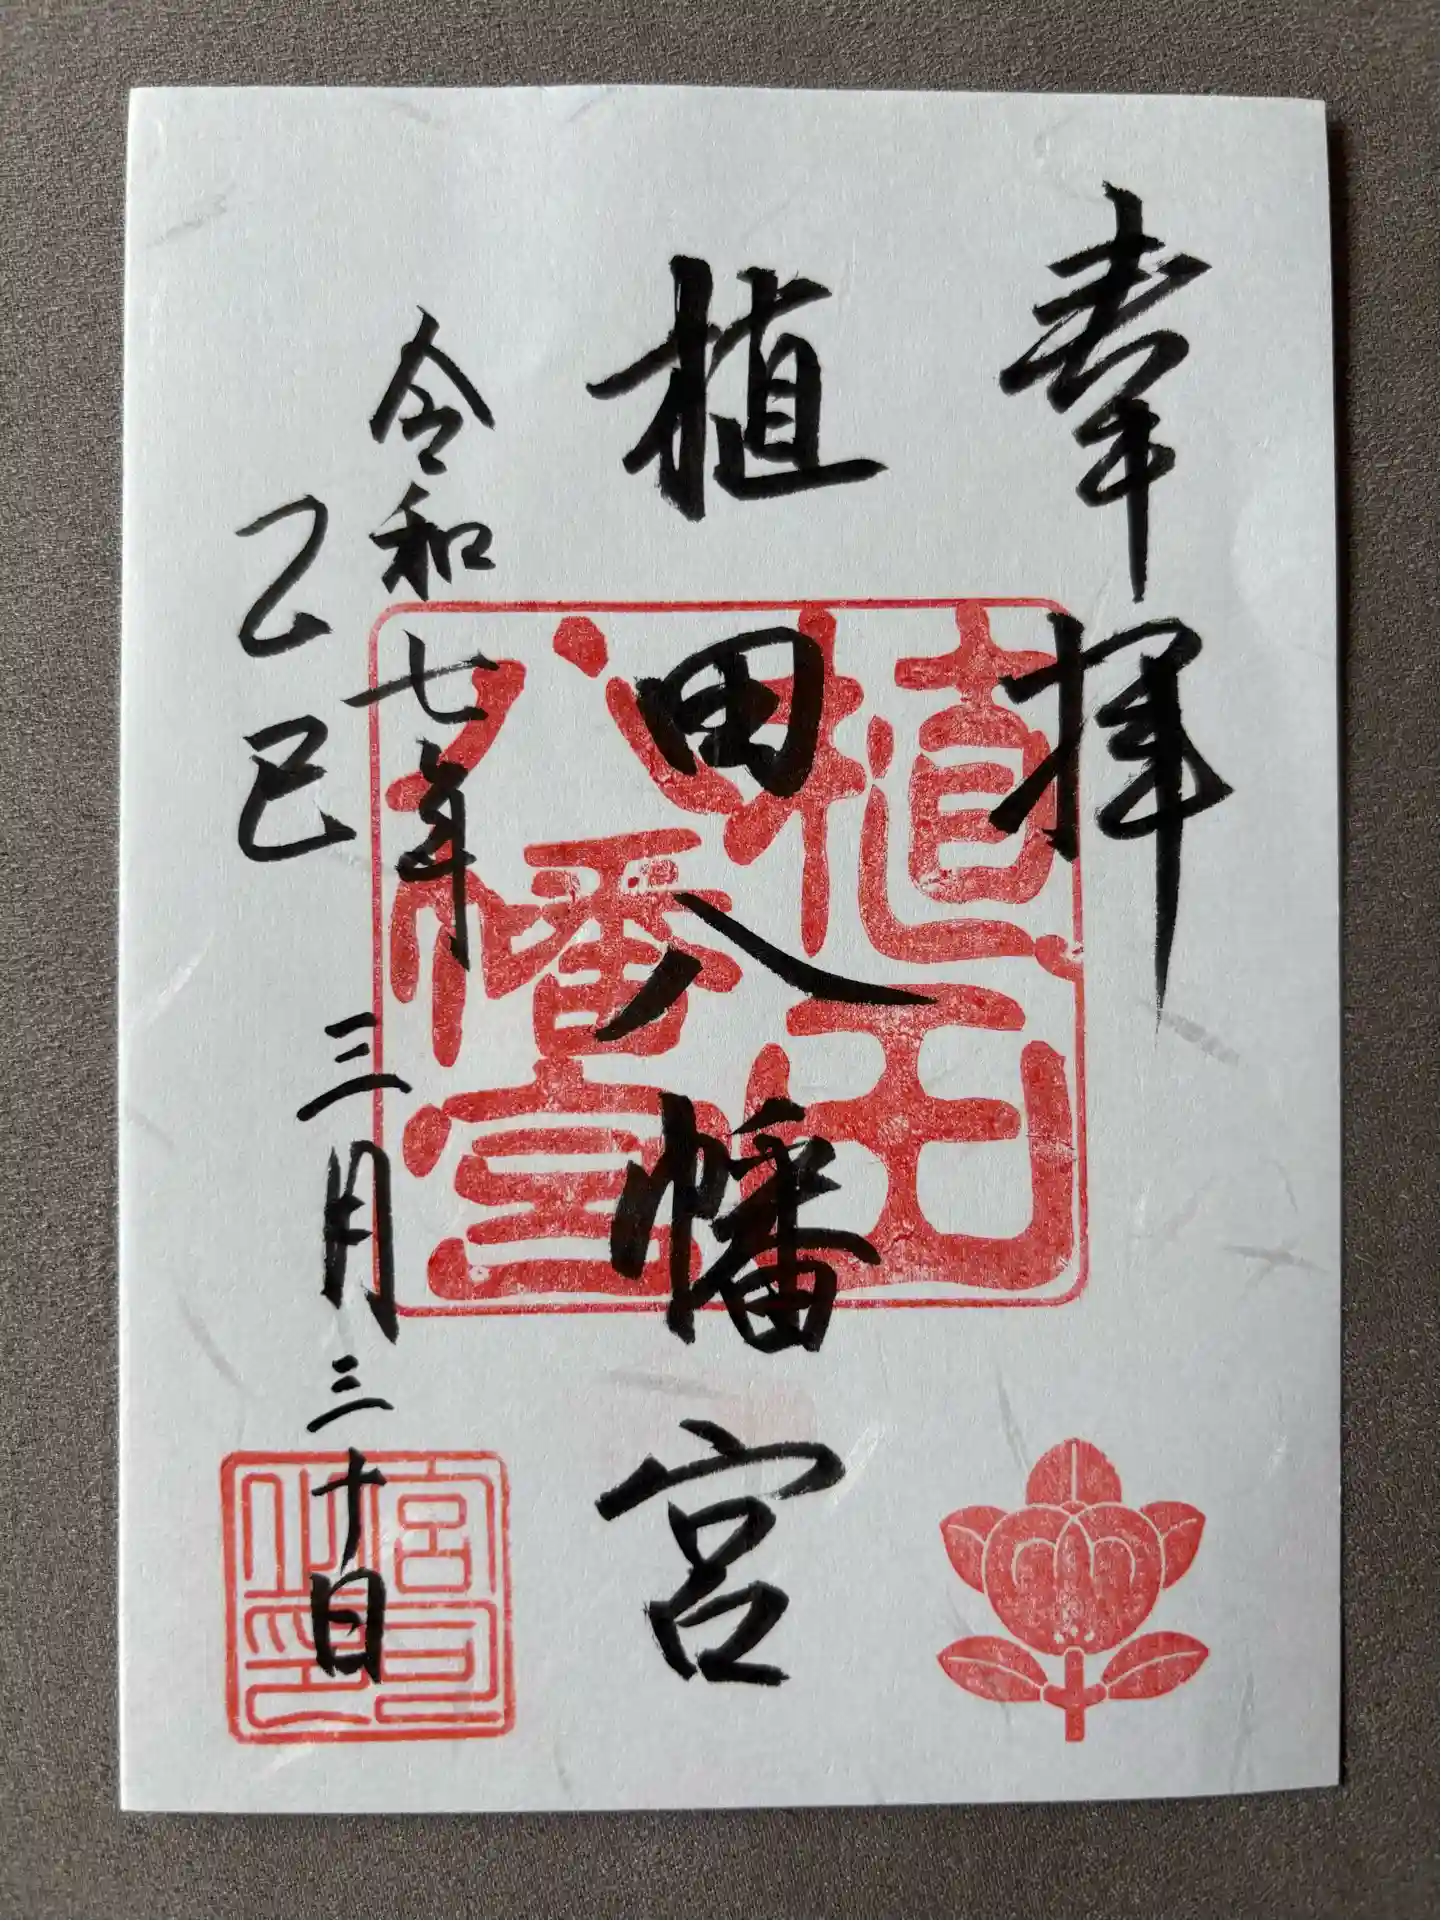 奉拝
植田八幡宮
令和七年三月三十日
乙巳
植田
八幡宮
宮司
之印